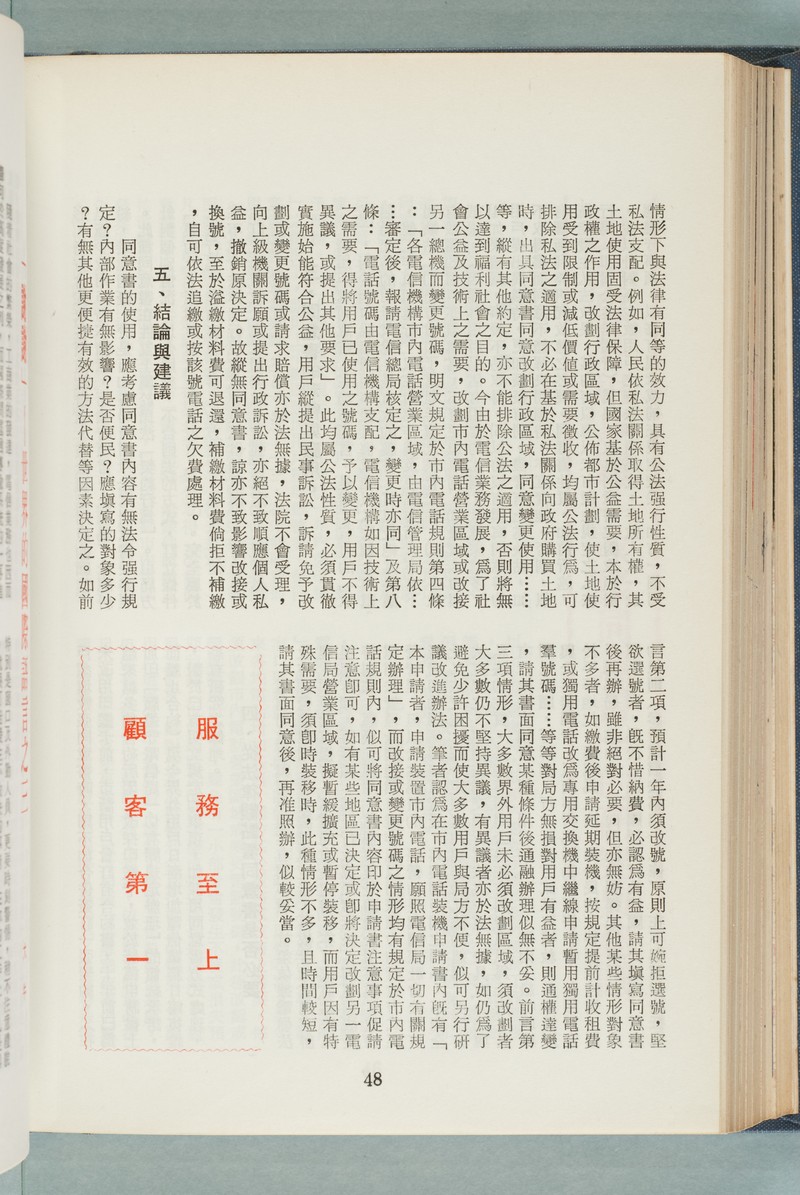 情形下與法律有同等的效力，具有公法强行性質，不受
私法支配。例如，人民依私法關係取得土地所有權，其
土地使用固受法律保障，但國家基於公益需要，本於行
政權之作用，改劃行政區域，公佈都市計劃，使土地使
用受到限制或減低價值或需要徵收，均屬公法行爲，可
排除私法之適用，不必在基於私法關係向政府購買土地
時，出具同意書同意改劃行政區域，同意變更使用……
等，縱有其他約定，亦不能排除公法之適用，否則將無
以達到福利社會之目的。今由於電信業務發展，爲了社
會公益及技術上之需要，改劃市內電話營業區域或改接
另一總機而變更號碼，明文規定於市內電話規則第四條
：「各電信機構市內電話營業區域，由電信管理局依…
…審定後，報請電信總局核定之，變更時亦同」及第八
條：「電話號碼由電信機構支配，電信機構如因技術上
之需要，得將用戶已使用之號碼，予以變更，用戶不得
異議，或提出其他要求」。此均屬公法性質，必須貫徹
實施始能符合公益，用戶縱提出民事訴訟，訴請免予改
劃或變更號碼或請求賠償亦於法無據，法院不會受理，
向上級機關訴願或提出行政訴訟，亦絕不致順應個人私
益，撤銷原決定。故縱無同意書，諒亦不致影響改接或
換號，至於溢繳材料費可退還，補繳材料費倘拒不補繳
，自可依法追繳或按該號電話之欠費處理。
五、結論與建議
同意書的使用，應考慮同意書內容有無法令强行規
定？內部作業有無影響？是否便民？應塡寫的對象多少
？有無其他更便捷有效的方法代替等因素決定之。如前
言第二項，預計一年內須改號，原則上可婉拒選號，堅
欲選號者，旣不惜納費，必認爲有益，請其塡寫同意書
後再辦，雖非絕對必要，但亦無妨。其他某些情形對象
不多者，如繳費後申請延期裝機，按規定提前計收租費
，或獨用電話改爲專用交換機中繼線申請暫用獨用電話
羣號碼……等等對局方無損對用戶有益者，則通權達變
，請其書面同意某種條件後通融辦理似無不妥。前言第
三項情形，大多數界外用戶未必須改劃區域，須改劃者
大多數仍不堅持異議，有異議者亦於法無據，如仍爲了
避免少許困擾而使大多數用戶與局方不便，似可另行研
議改進辦法。筆者認爲在市內電話裝機申請書內旣有「
本申請者，申請裝置市內電話，願照電信局一切有關規
定辦理」，而改接或變更號碼之情形均有規定於市內電
話規則內，似可將同意書內容印於申請書注意事項促請
注意卽可，如有某些地區已決定或卽將決定改劃另一電
信局營業區域，擬暫緩擴充或暫停裝移，而用戶因有特
殊需要，須卽時裝移時，此種情形不多，且時間較短，
請其書面同意後，再准照辦，似較妥當。
服務至上
顧客第一
48